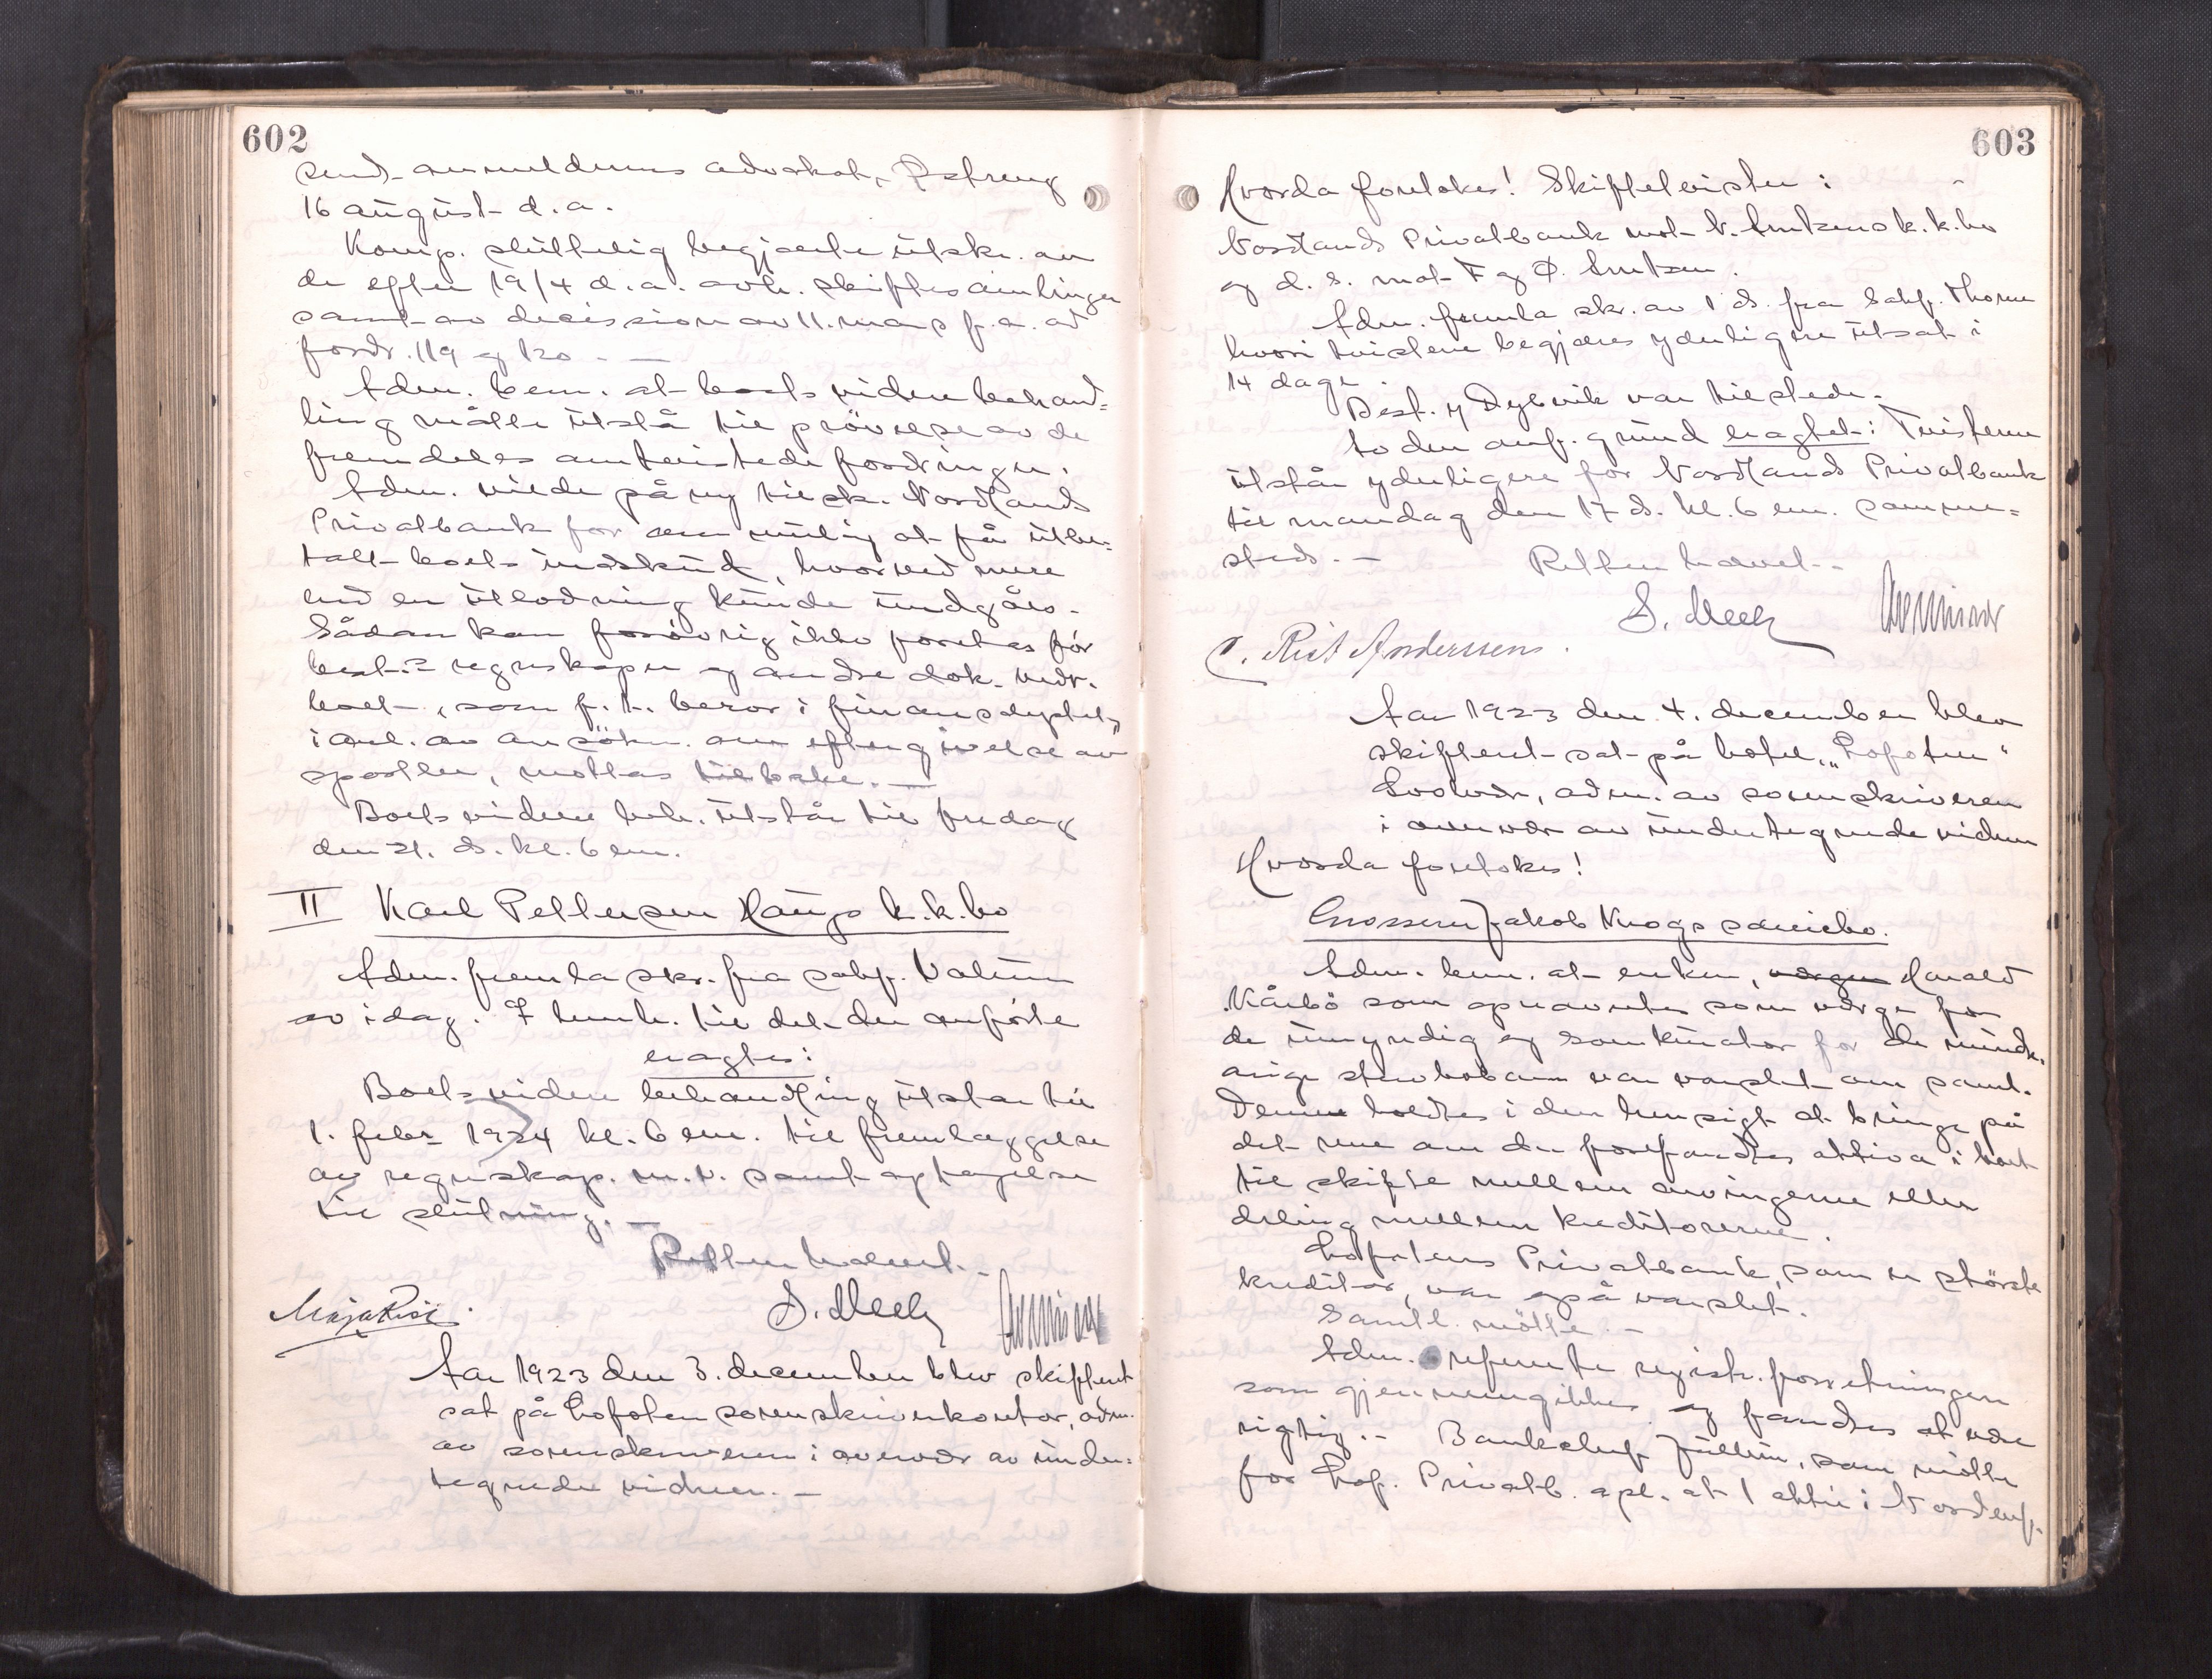 602
send. anmeldernes advokat, Østreng
16 august d. a.
Komp. sluttelig begjærte utskr. av
de efter 19/4 d. a. avh. skiftesamlinger
samt av decission av 11. mars f. a. ad
fordr. 119 og 120. —
Adm. bem. at boets videre behand=
ling måtte utstå til prövelse av de
fremdeles omtvistede fordringer.
Adm. vilde på ny tilsk. Nordlands
Privatbank for om mulig at få utbe=
talt boets indskud, hvorved mere
end en utlodning kunde undgåes.
Sådan kan forövrig ikke foretas för
best.s regnskaper og andre dok. vedr.
boet, som f. t. beror i finansdeptet,
i anl. av ansökn. om eftergivelse av
sportler, mottas tilbake. —
Boets videre beh. utstår til fredag
den 21. ds. kl. 6 em.
II Karl Pettersen Haugs k.k.bo
Adm. fremla skr. fra sakf.
av idag. I henh. til det der anförte
eragtes:
Boets videre behandling utstår til
1. febr. 1924 kl. 6 em. til fremlæggelse
av regnskap. m. v. samt optagelse
til slutning. —
Retten hævet. -
Maja Riise. S. Mech
Aar 1923 den 3. december blev skifteret
sat på Lofoten sorenskriverkontor, adm.
av sorenskriveren i overvær av under=
tegnede vidner. —
603
Hvorda foretokes! Skiftetvister:
Nordlands Privatbank mot N. k.k.bo
og d. s. mot F og Ø.
Adm. fremla skr. av 1 ds. fra Sakf. Thorne
hvori tvistene begjæres yderligere utsat i
14 dage.
Best. Dybvik var tilstede.
Av den anf. grund eragtet: Tvisterne
utstår yderligere for Nordlands Privatbank
til mandag den 17 ds. kl. 6 em. samme=
steds. — Retten hævet. -
S. Mech
C. Riis Anderssens.
Aar 1923 den 4. december blev
skifteret sat på hotel „Lofoten"
Svolvær, adm. av sorenskriveren
i overvær av undertegnede vidner
Hvorda foretokes!
Grosserer Jakob Krogs særiebo.
Adm. bem. at enken, værgen Harald
Kårbö som opnævntes som værge for
de umyndig og som kurator for de mindr.
årige stervbobarn var varslet om saml.
Denne holdtes i den hensigt at bringe på
det rene om der forefandtes aktiva i boet
til skifte mellem arvingerne eller
deling mellem kreditorerne.
Lofotens Privatbank, som er störste
kreditor, var også varslet.
Samtl. mötte. —
Adm. refererte registr.forretningen
som gjennemgikkes og fandtes at være
rigtig. - Bankchef Jullum, som mötte
for Lof. Privatb. opl. at 1 aktie i Nordenf.